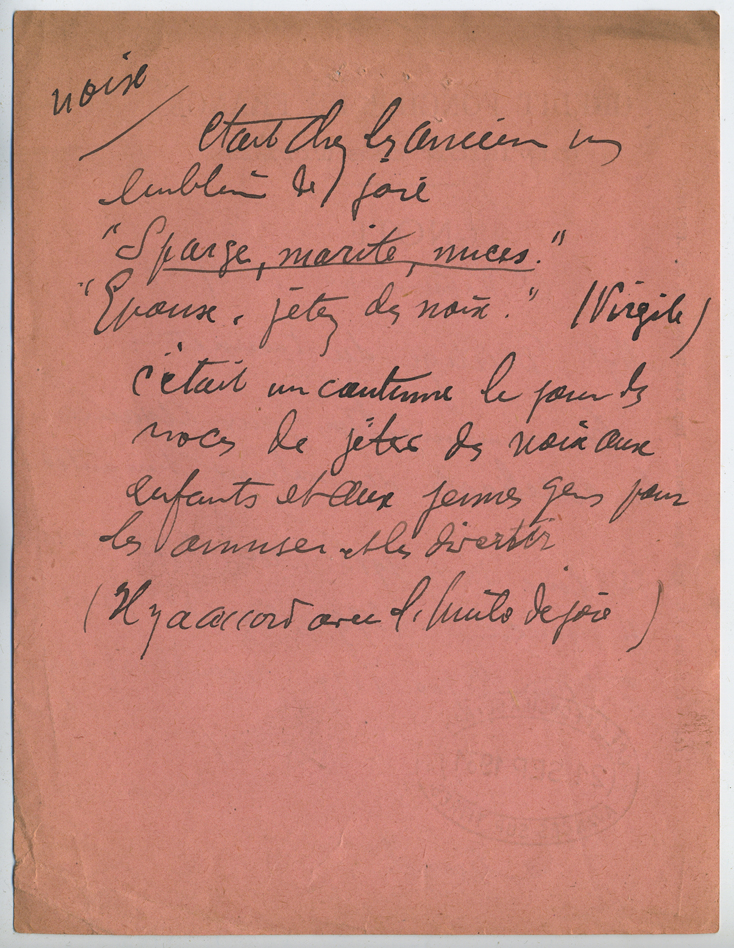 noix
était chez les anciens un
emblème de joie
"Sparge, marite, nuces."
"Epoux, jetez des noix." (Virgile)
c'était une coutume le jour des
noces de jeter des noix aux
enfants et aux jeunes gens pour
les amuser et les divertir
(Il y a accord avec l'huile de joie)